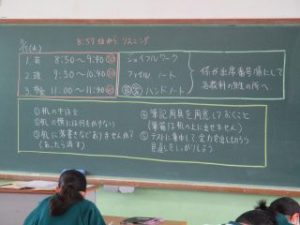 8:57位から リスニング
1. 英 8:50〜9:40
2. 理 9:50〜10:40
3. 学 11:00〜11:50
ファイル ノート
ハンドノート
係が出席番号順にして
各教科の先生の所へ
①机の中は空
②机の横には何もかけない
③机に落書きなどありませんか?
(あたら消す)
④筆記用具を用意しておくこと
(筆箱は机の上に出せません)
⑤テストに集中して全力を出し切ろう
見直しをしっかりしよう